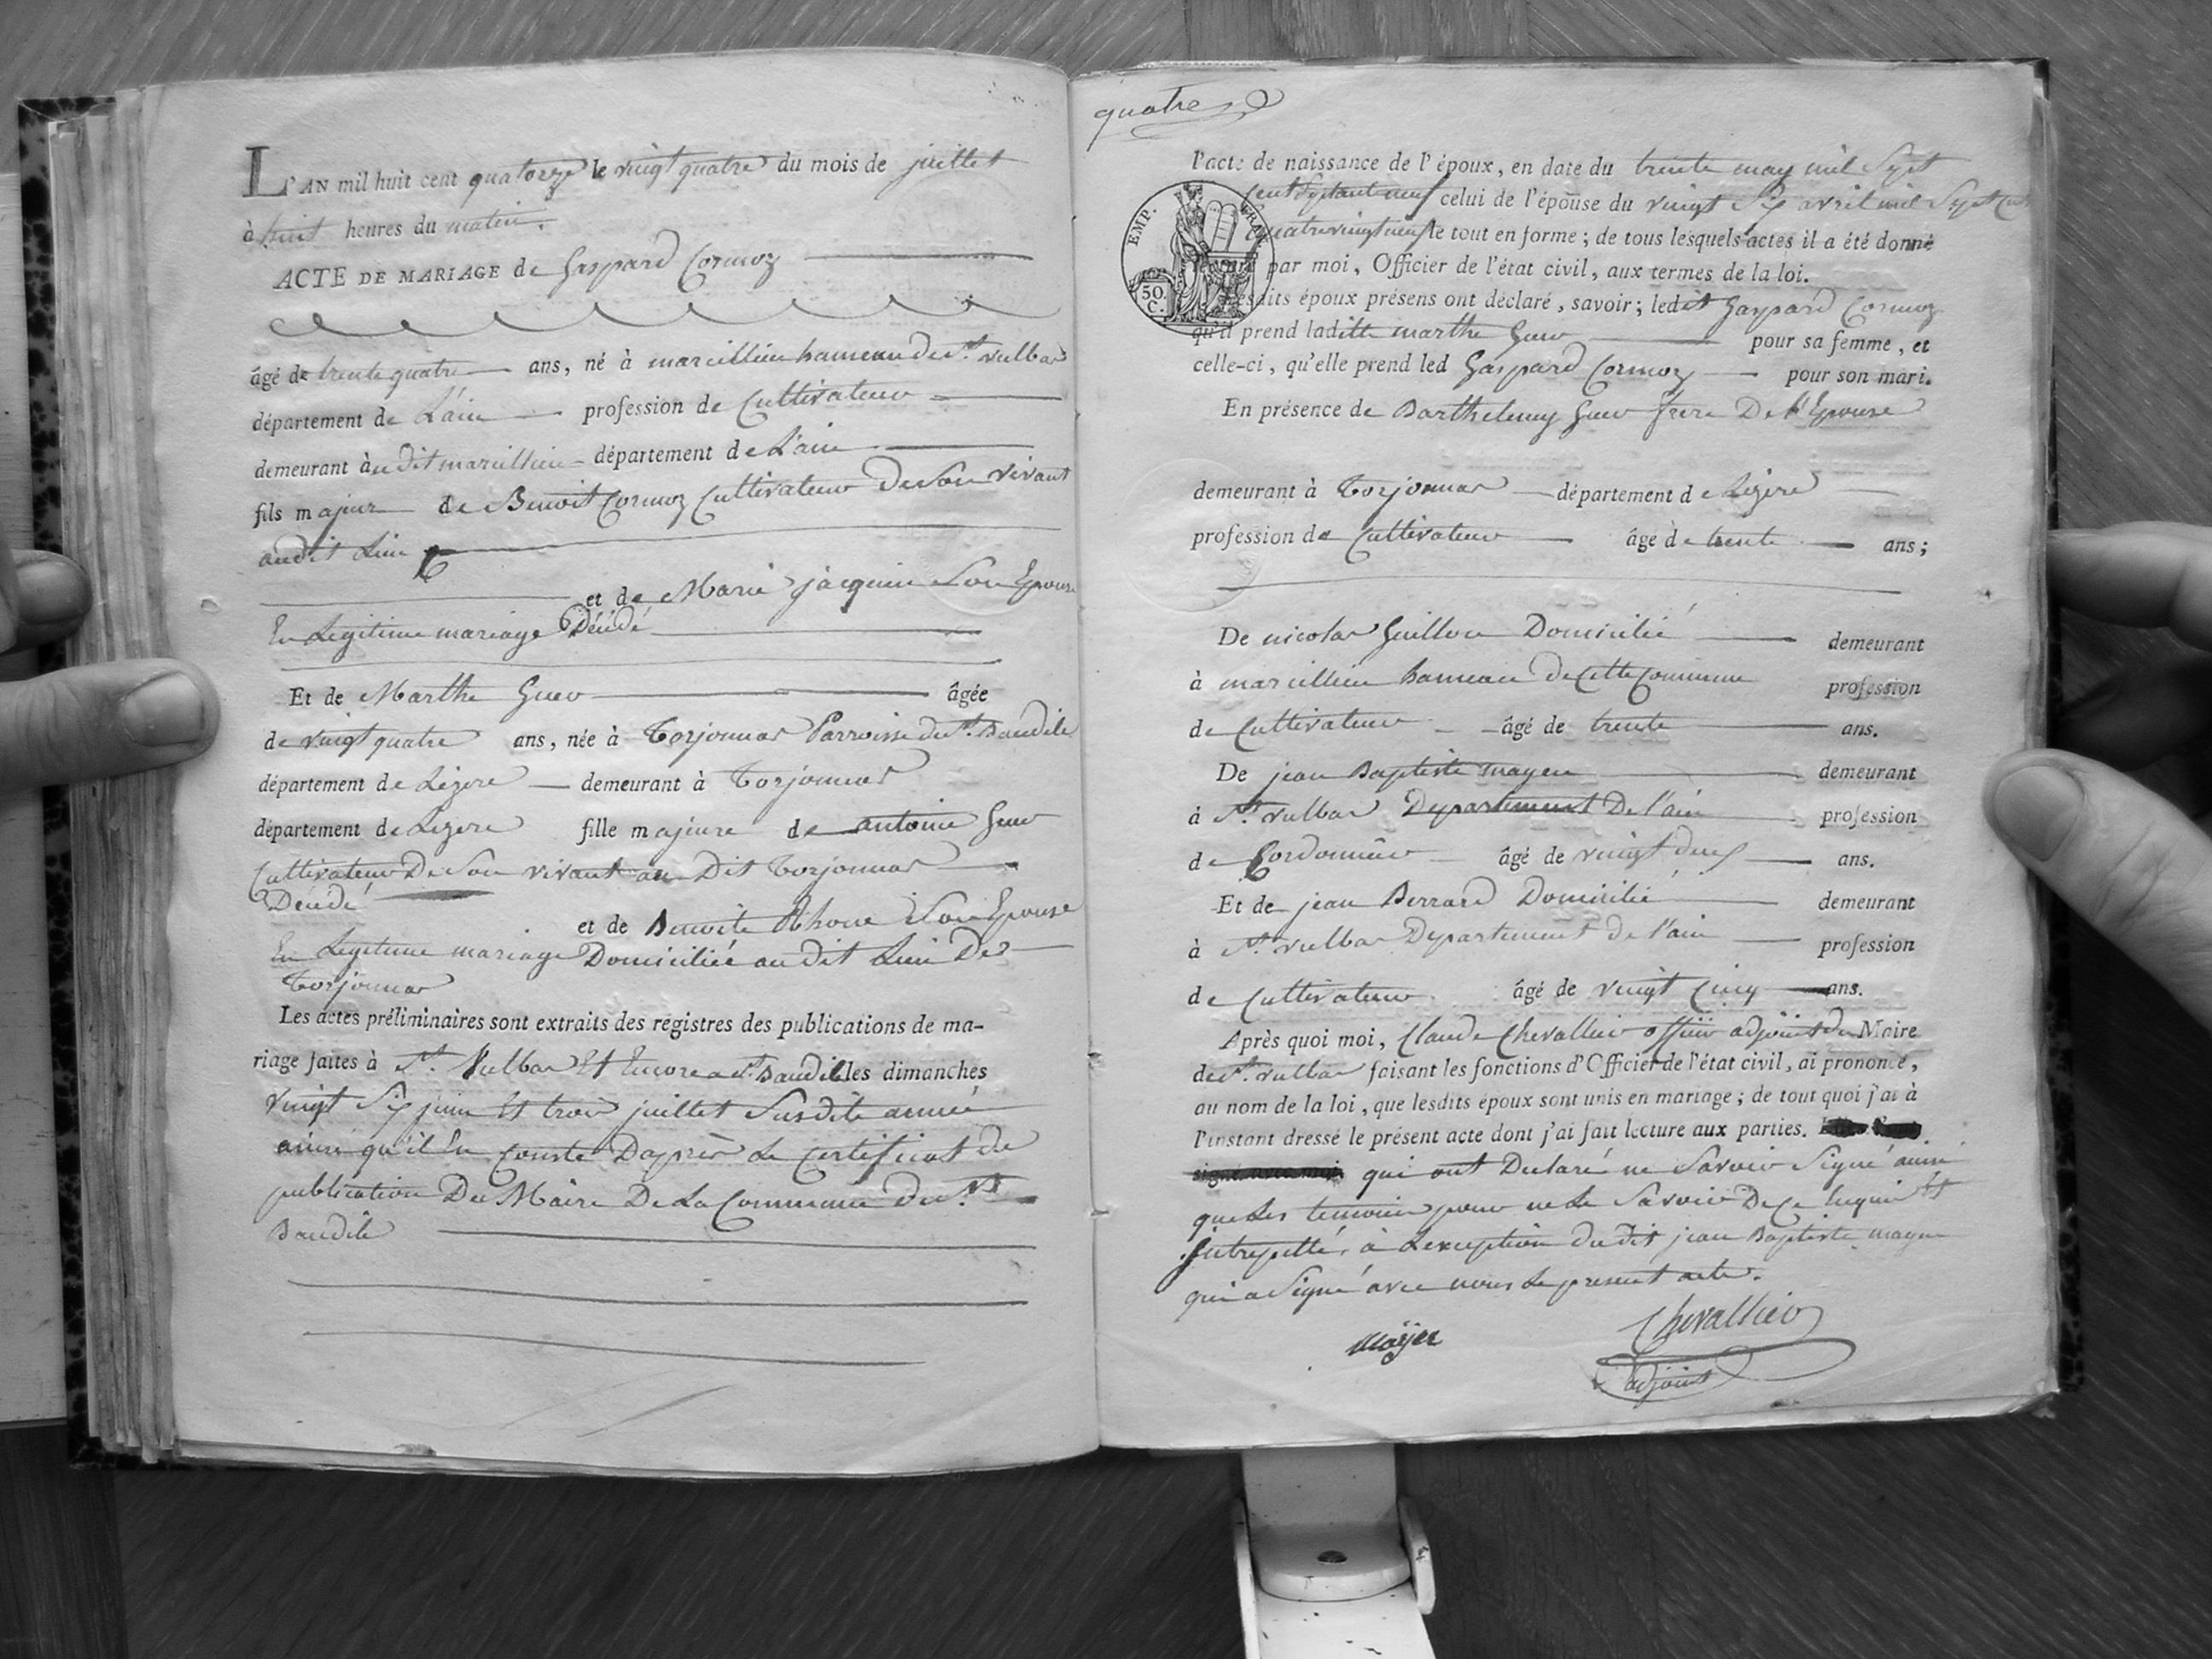 L'AN mil huit cent quatorze le vingt quatre du mois de juillet
à huit heures du matin.
ACTE DE MARIAGE de Gaspard Cormoz
âgé de trente quatre ans, né à marcillieu hameau de St. vulbas
département de L'ain profession de Cultivateur
demeurant au dit marcillieu département de L'ain
fils majeur de Benoit Cormoz Cultivateur De Son vivant
audit Lieu
et de Marie jacquin Son Epouse
En Legitime mariage Décédé
Et de Marthe Guer âgée
de vingt quatre ans, née à torjonnas Parroisse de St. Baudile
département de Lizere demeurant à torjonnas
département de Lizere fille majeure de antoine Guer
Cultivateur De Son vivant au Dit torjonnas
Décédé
et de Benoite Son Epouse
En Legitime mariage Domiciliée au dit Lieu De
torjonnas
Les actes préliminaires sont extraits des registres des publications de ma-
riage faites à St. Vulbas Et Encore a St. Baudile les dimanches
vingt Six juin Et trois juillet Susdite année
ainsi qu'il En Conste Daprès Le Certificat de
publication Du Maire De La Commune de St.
Baudile
quatre
l'acte de naissance de l'époux, en date du trente may mil Sept
Cent Septante neuf celui de l'épouse du vingt Six avril mil Sept Cent
quatrevingt neuf le tout en forme ; de tous lesquels actes il a été donné
EMP. FRAN.
50. C.
lecture par moi, Officier de l'état civil, aux termes de la loi.
Lesdits époux présens ont déclaré, savoir ; ledit Gaspard Cormoz
qu'il prend ladite marthe Guer pour sa femme, et
celle-ci, qu'elle prend led Gaspard Cormoz pour son mari.
En présence de Barthelemy Guer frere De l'Epouse
demeurant à torjonnas département de Lizere
profession de Cultivateur âgé de trente ans ;
De nicolas Guillon Domicilié demeurant
à marcillieu hameau de Cette Commune profession
de Cultivateur âgé de trente ans.
De jean Baptiste mayer demeurant
à St. vulbas Departement De l'ain profession
de Cordonnier âgé de vingt deux ans.
Et de jean Berrard Domicilié demeurant
à St. vulbas Departement de l'ain profession
de Cultivateur âgé de vingt Cinq ans.
Après quoi moi, Claude Chevallier officier adjoint du Maire
de St. vulbas faisant les fonctions d'Officier de l'état civil, ai prononcé,
au nom de la loi, que lesdits époux sont unis en mariage ; de tout quoi j'ai à
l'instant dressé le présent acte dont j'ai fait lecture aux parties.
qui ont Declaré ne Savoir Signé ainsi
que Les temoins pour ne Le Savoir De Ce Enquis Et
Interpellé, à Lexception du dit jean Baptiste mayer
qui a Signé avec nous Le present acte.
Maÿer Chevallier
adjoint